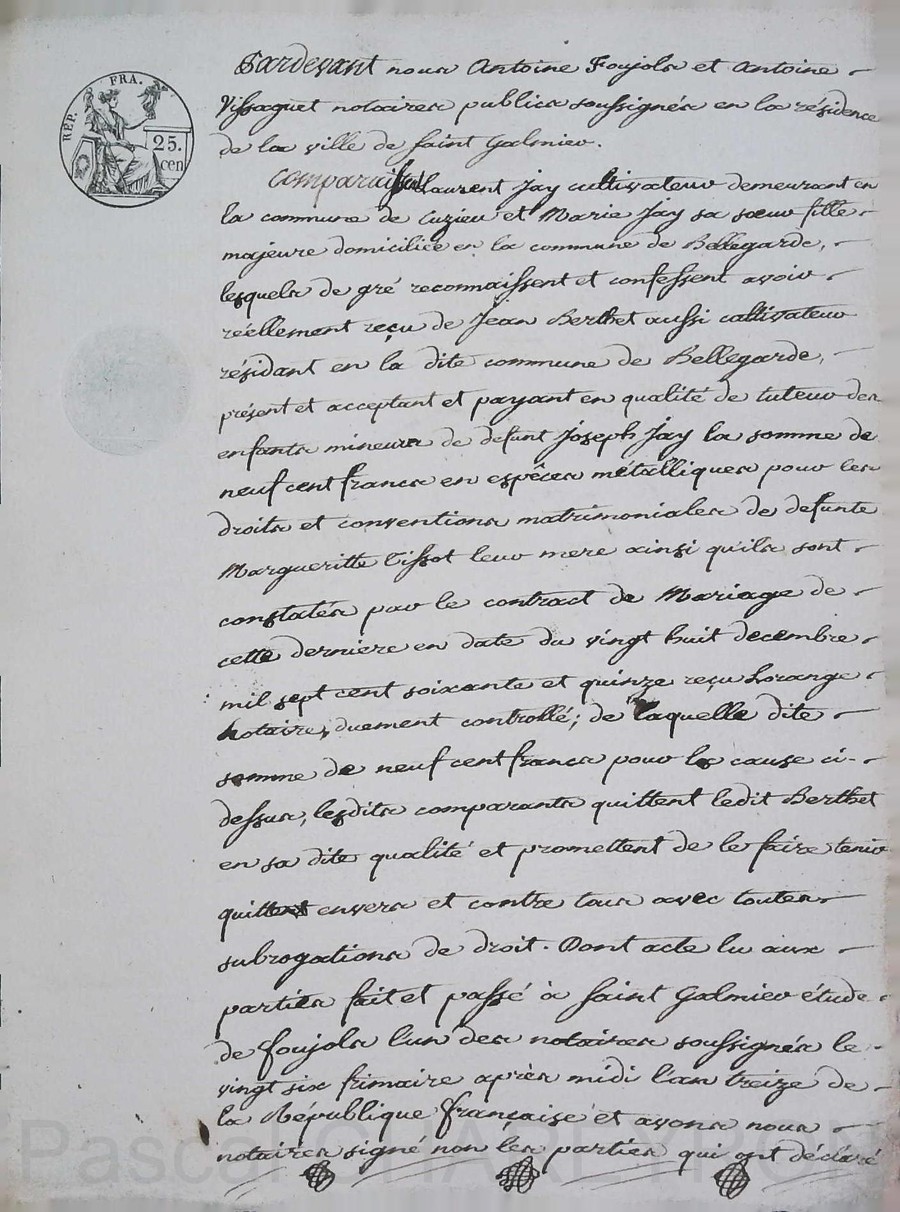 RÉP. FRA.
25.
cen
Pardevant nous Antoine Foujols et Antoine
Vissaguet notaires publics soussignés en la résidence
de la ville de Saint Galmier.
Comparaissent Laurent Jay cultivateur demeurant en
la commune de Cuzieu et Marie Jay sa sœur fille
majeure domiciliée en la commune de Bellegarde,
lesquels de gré reconnaissent et confessent avoir
réellement reçu de Jean Berthet aussi cultivateur
résidant en la dite commune de Bellegarde,
présent et acceptant et payant en qualité de tuteur des
enfants mineurs de defunt Joseph Jay la somme de
neuf cent francs en espêces métalliques pour les
droits et conventions matrimoniales de defunte
Margueritte Tissot leur mere ainsi qu'ils sont
constatés par le contract de Mariage de
cette derniere en date du vingt huit decembre
mil sept cent soixante et quinze reçu Lorange
notaire, duement controllé; de laquelle dite
somme de neuf cent francs pour la cause ci-
dessus, lesdits comparants quittent ledit Berthet
en sa dite qualité et promettent de le faire tenir
quitte envers et contre tous avec toutes
subrogations de droit. Dont acte lu aux
parties fait et passé à Saint Galmier étude
de Foujols l'un des notaires soussignés le
vingt six frimaire après midi l'an treize de
la République française et avons nous
notaires signé non les parties qui ont déclaré
Pascal CHARLEYRON